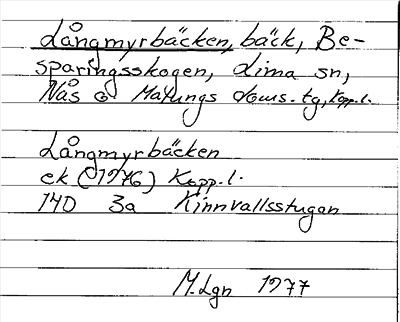 Långmyrbäcken, bäck, Be-
sparingsskogen, Lima sn,
Nås o Malungs doms. tg, Kopp.l.
Långmyrbäcken
ek (1976) Kopp.l.
14D 3a Kinnvallsstugan
M.Lgn 1977